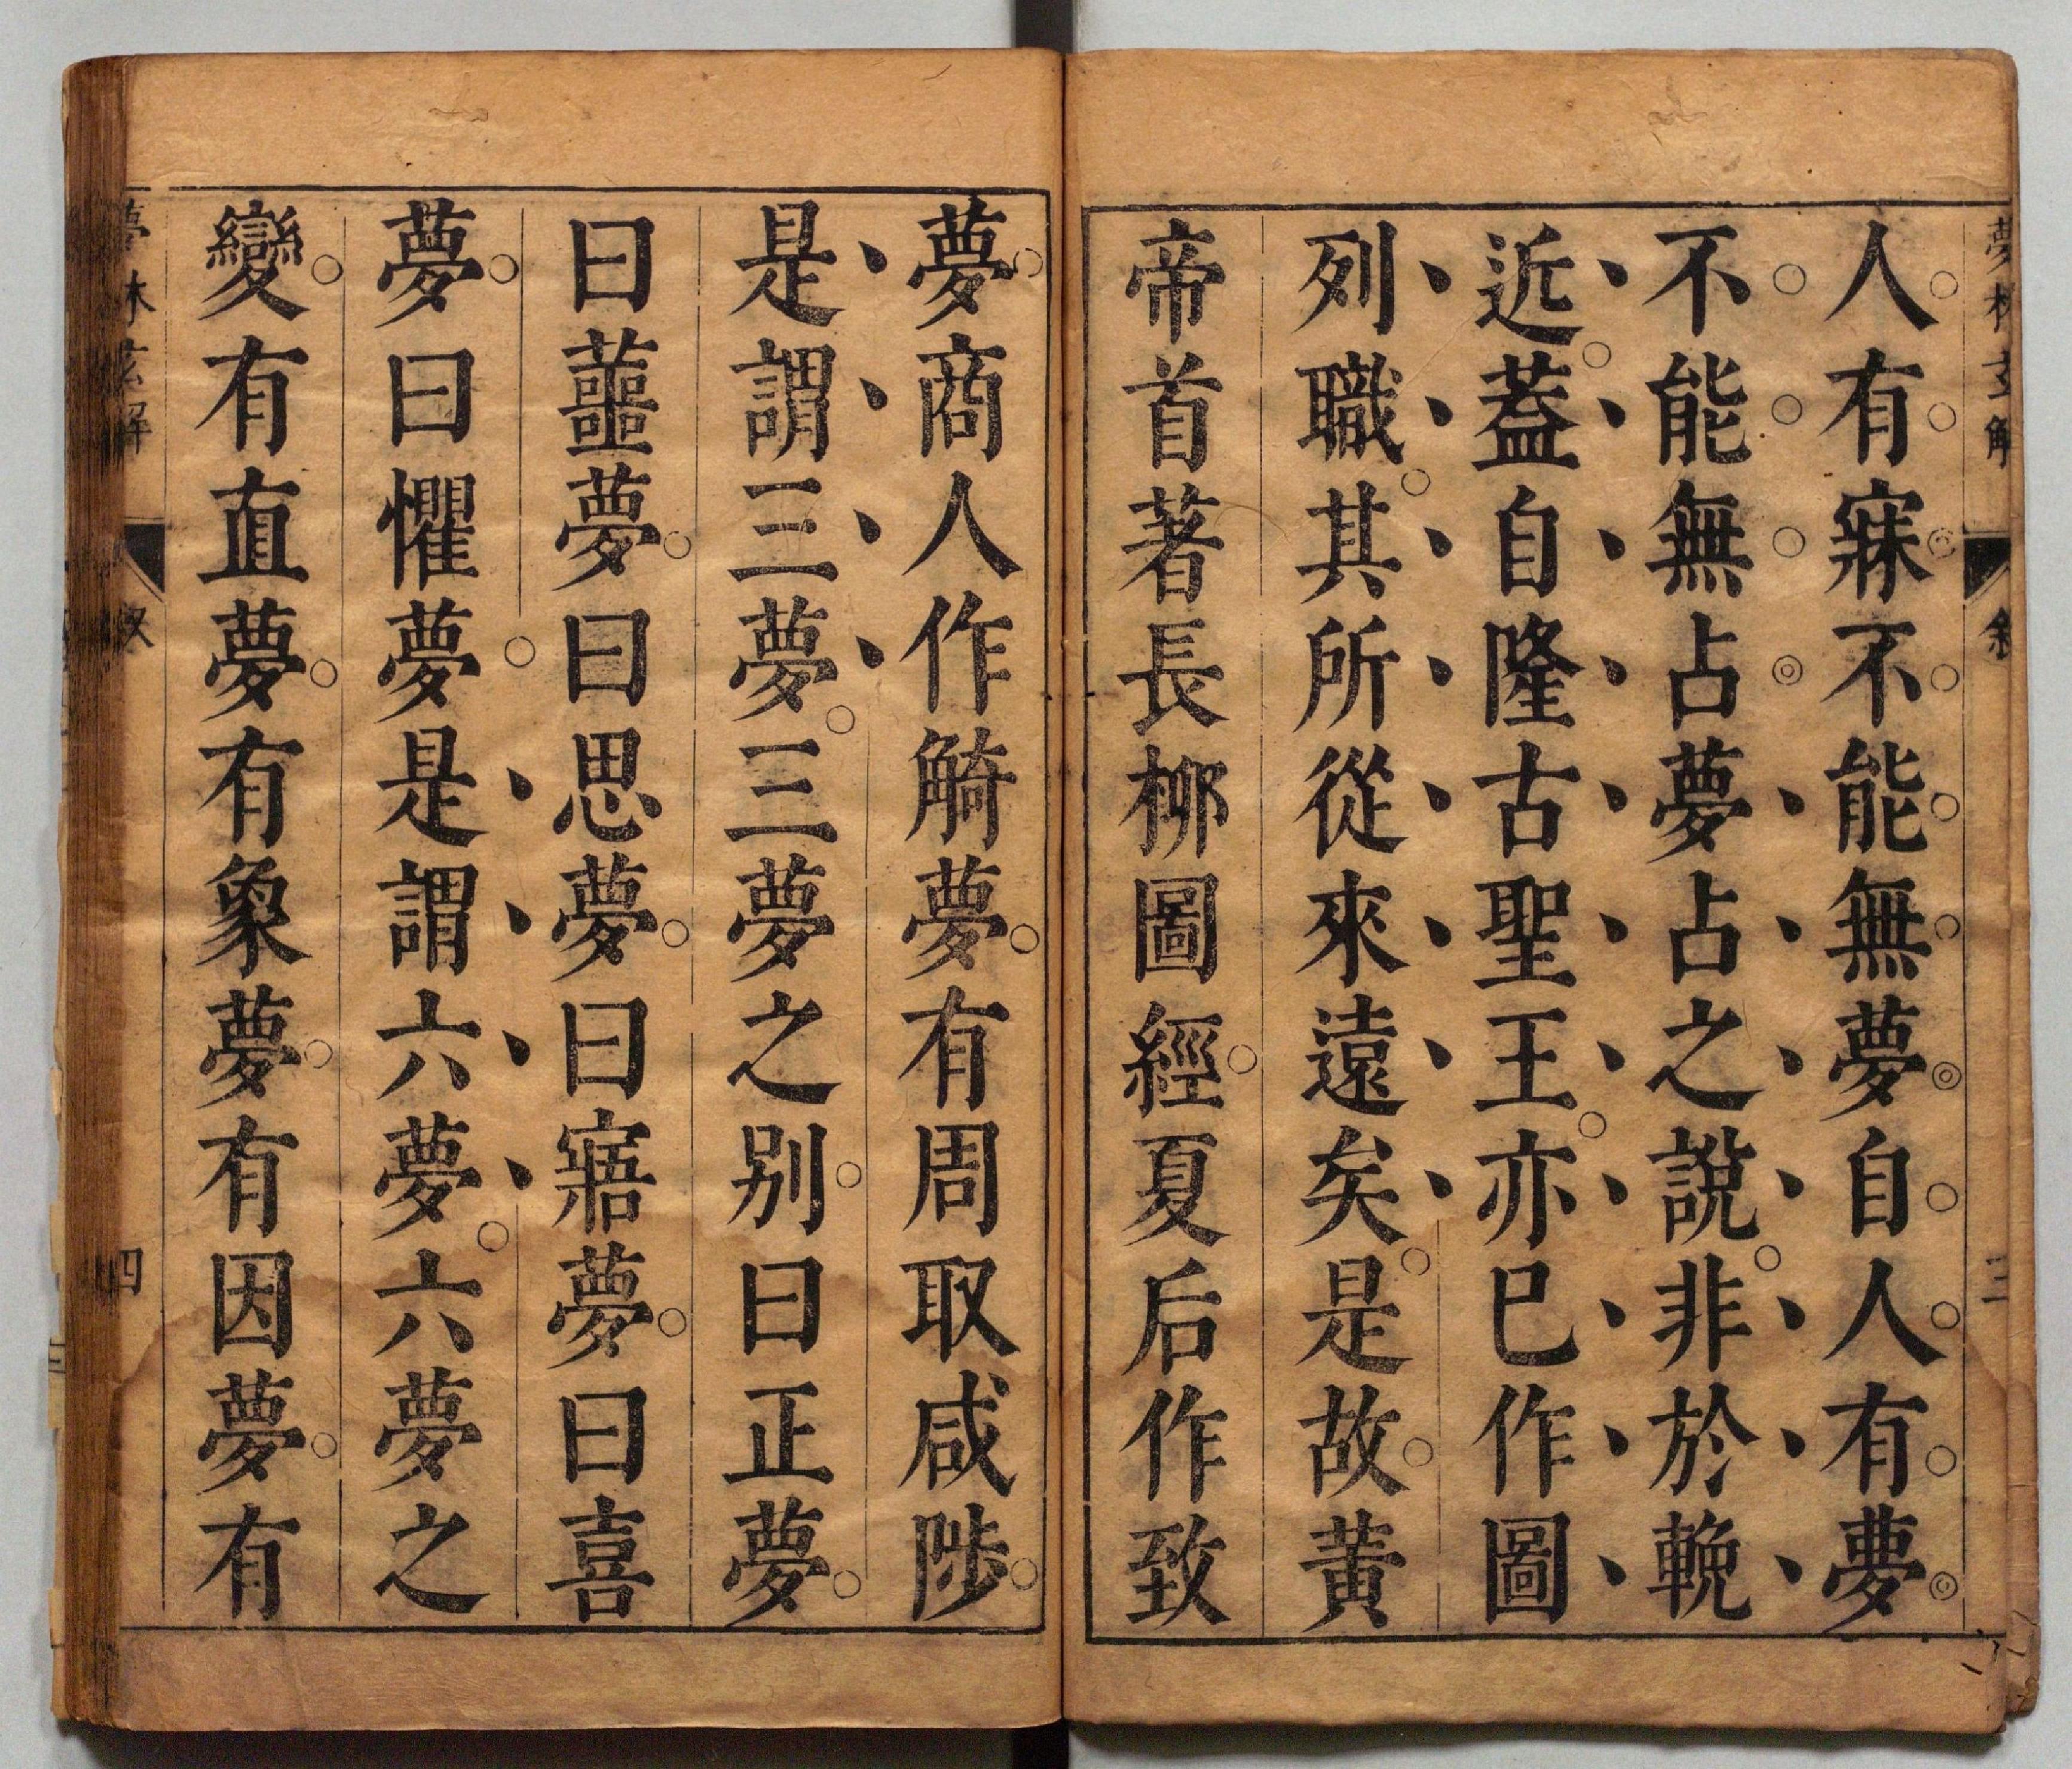 夢林玄解
叙
三
人有寐不能無夢自人有夢
不能無占夢占之說非於輓
近蓋自隆古聖王亦巳作圖
列職其所從來遠矣是故黃
帝首著長柳圖經夏后作致
夢商人作觭夢有周取咸陟
是謂三夢三夢之别曰正夢
曰噩夢曰思夢曰寤夢曰喜
夢曰懼夢是謂六夢六夢之
變有直夢有象夢有因夢有
夢林玄解
叙
四